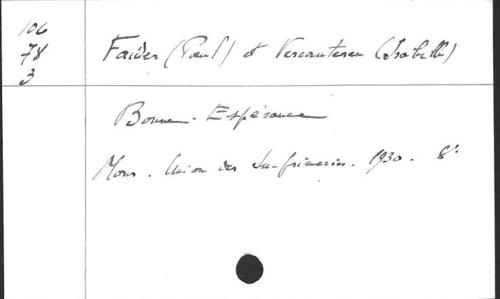 106
78
3
Faider (Paul) et Vercauteren (Isabelle)
Bonne-Espérance
Mons. Union des Imprimeries. 1930. 8°